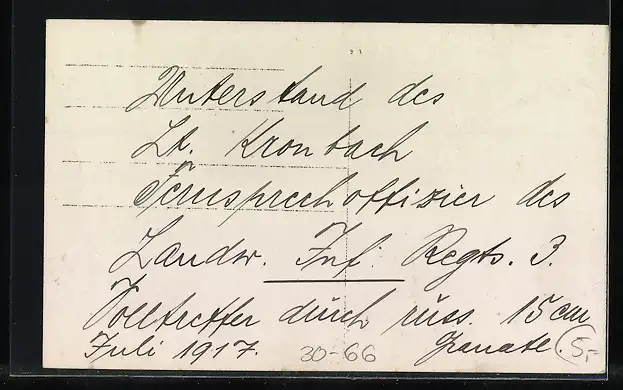 Unterstand des
Lt. Kronbach
Fernsprechoffizier des
Landw. Inf. Regts. 3.
Volltreffer durch russ. 15 cm
Juli 1917. 30-66 Granate (5,-